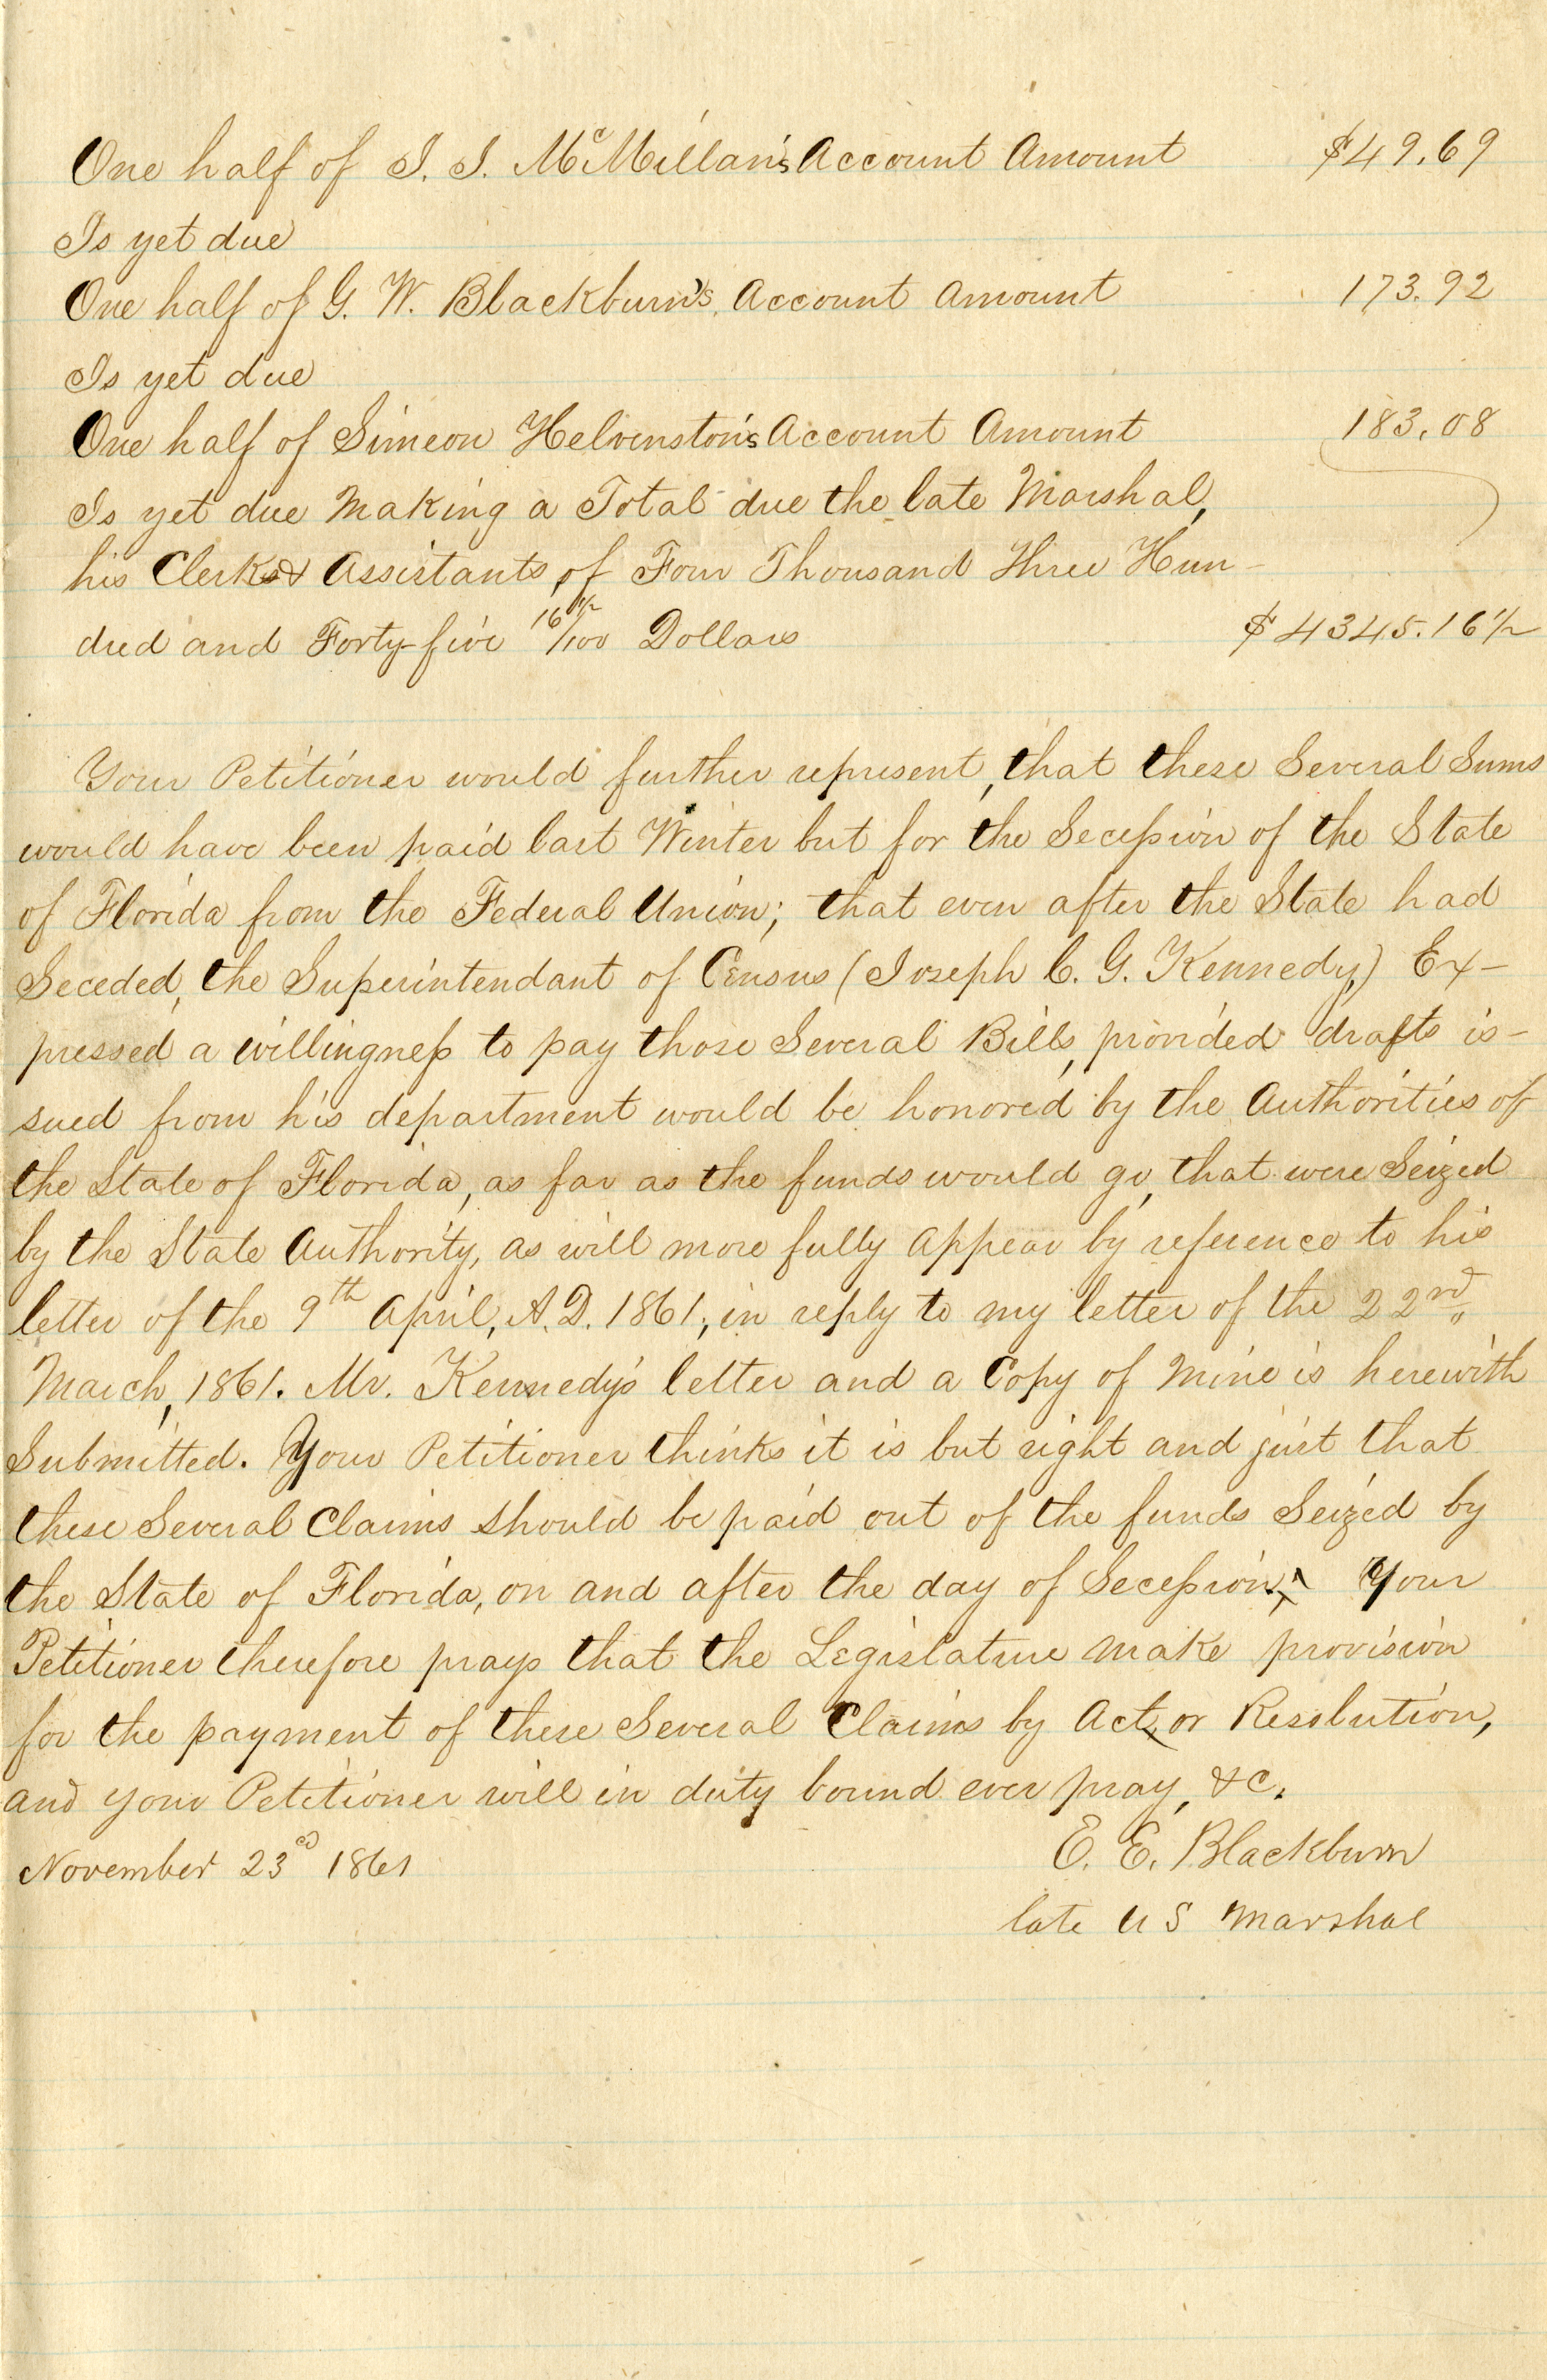 One half of J. J. McMillan's Account Amount $49.69
Is yet due
One half of G. W. Blackburn's Account Amount 173.92
Is yet due
One half of Simeon Helvenston's Account Amount 183.08
Is yet due Making a Total due the late Marshal,
his Clerks & Assistants, of Four Thousand Three Hun-
dred and Forty-five 16½/100 Dollars $4345.16½
Your Petitioner would further represent, that these Several Sums
would have been paid last Winter but for the Secession of the State
of Florida from the Federal Union; that even after the State had
Seceded, the Superintendant of Census (Joseph C. G. Kennedy,) Ex-
pressed a willingness to pay those Several Bills, provided drafts is-
sued from his department would be honored by the Authorities of
the State of Florida, as far as the funds would go, that were Seized
by the State Authority, as will more fully appear by reference to his
letter of the 9th April, A.D. 1861, in reply to my letter of the 22nd.
March, 1861. Mr. Kennedy's letter and a Copy of Mine is herewith
Submitted. Your Petitioner thinks it is but right and just that
these Several Claims should be paid out of the funds Seized by
the State of Florida, on and after the day of Secession. Your
Petitioner therefore prays that the Legislature Make provision
for the payment of these Several Claims by Act, or Resolution,
and your Petitioner will in duty bound ever pray, &c.
November 23d 1861 E. E. Blackburn
late U S Marshal